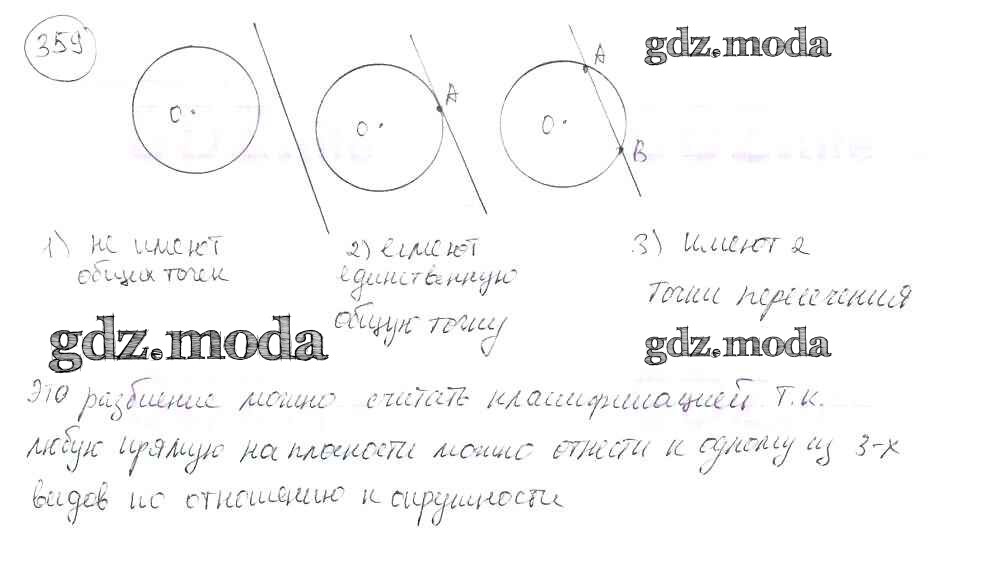 359
gdz.moda
O
A
O
A
O
B
1) не имеют
общих точек
2) имеют
единственную
общую точку
3) имеют 2
точки пересечения
gdz.moda
gdz.moda
Это разбиение можно считать классификацией т.к.
любую прямую на плоскости можно отнести к одному из 3-х
видов по отношению к окружности